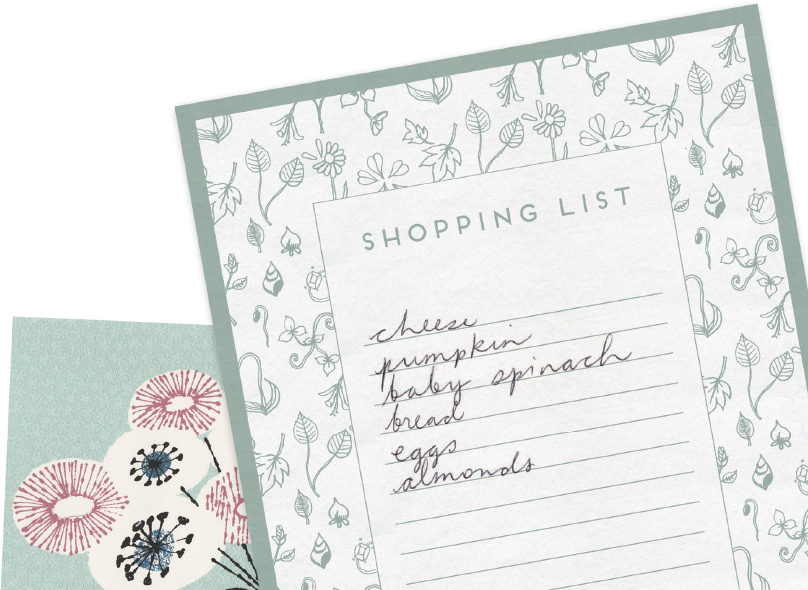 SHOPPING LIST
cheese
pumpkin
baby spinach
bread
eggs
almonds